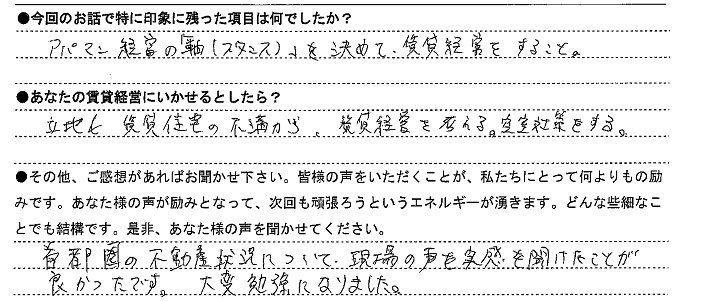 ●今回のお話で特に印象に残った項目は何でしたか？
アパマン経営の「軸（スタンス）」を決めて、賃貸経営をすること。
●あなたの賃貸経営にいかせるとしたら？
立地と賃貸住宅の不満から、賃貸経営を考える。空室対策をする。
●その他、ご感想があればお聞かせ下さい。皆様の声をいただくことが、私たちにとって何よりもの励
みです。あなた様の声が励みとなって、次回も頑張ろうというエネルギーが湧きます。どんな些細なこ
とでも結構です。是非、あなた様の声を聞かせてください。
首都圏の不動産状況について、現場の声を実感を聞けたことが
良かったです。大変勉強になりました。